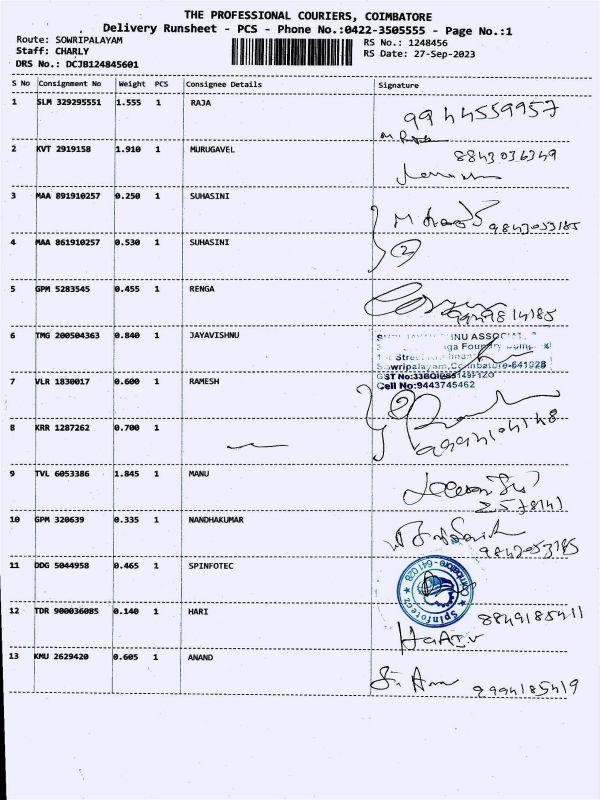 THE PROFESSIONAL COURIERS, COIMBATORE
Delivery Runsheet - PCS - Phone No.:0422-3505555 - Page No.:1
Route: SOWRIPALAYAM
RS No.: 1248456
Staff: CHARLY
RS Date: 27-Sep-2023
DRS No.: DCJB124845601
S No Consignment No Weight PCS Consignee Details Signature
1 SLM 329295551 1.555 1 RAJA 9944559957
2 KVT 2919158 1.910 1 MURUGAVEL 8843036349
3 MAA 891910257 0.250 1 SUHASINI 9843053185
4 MAA 861910257 0.530 1 SUHASINI 2
5 GPM 5283545 0.455 1 RENGA
6 TMG 200504363 0.840 1 JAYAVISHNU
Sowripalayam,Coimbatore-641028
Cell No:9443745462
7 VLR 1830017 0.600 1 RAMESH 2
8 KRR 1287262 0.700 1
9 TVL 6053386 1.845 1 MANU
10 GPM 320639 0.335 1 NANDHAKUMAR
11 DDG 5044958 0.465 1 SPINFOTEC
Spinfotecz Coimbatore - 641 028
12 TDR 900036085 0.140 1 HARI 8849185411
13 KMU 2629420 0.605 1 ANAND 9994185419